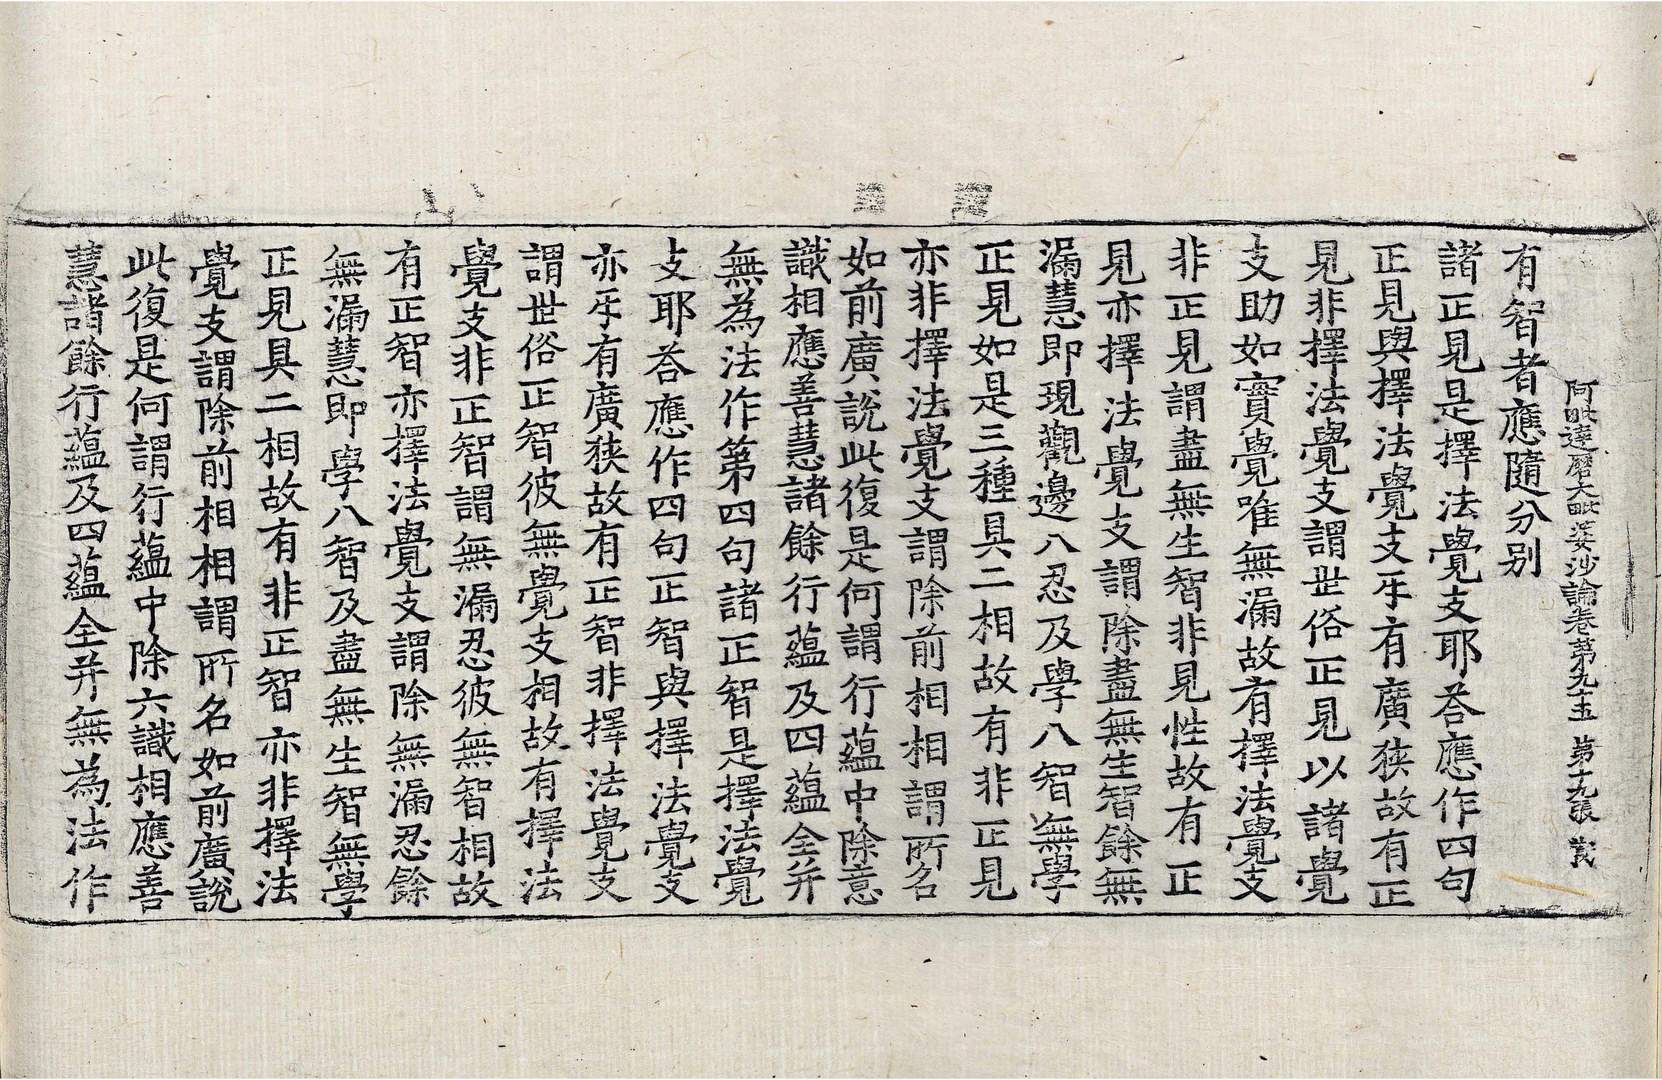 阿毗達磨大毗婆沙論卷第九十五 第十九張
有智者應隨分別
諸正見是擇法覺支耶荅應作四句
正見與擇法覺支㸦有廣狹故有正
見非擇法覺支謂世俗正見以諸覺
支助如實覺唯無漏故有擇法覺支
非正見謂盡無生智非見性故有正
見亦擇法覺支謂除盡無生智餘無
漏慧即現觀邊八忍及學八智無學
正見如是三種具二相故有非正見
亦非擇法覺支謂除前相相謂所名
如前廣說此復是何謂行蘊中除意
識相應善慧諸餘行蘊及四蘊全并
無為法作第四句諸正智是擇法覺
支耶荅應作四句正智與擇法覺支
亦㸦有廣狹故有正智非擇法覺支
謂世俗正智彼無覺支相故有擇法
覺支非正智謂無漏忍彼無智相故
有正智亦擇法覺支謂除無漏忍餘
無漏慧即學八智及盡無生智無學
正見具二相故有非正智亦非擇法
覺支謂除前相相謂所名如前廣說
此復是何謂行蘊中除六識相應善
慧諸餘行蘊及四蘊全并無為法作